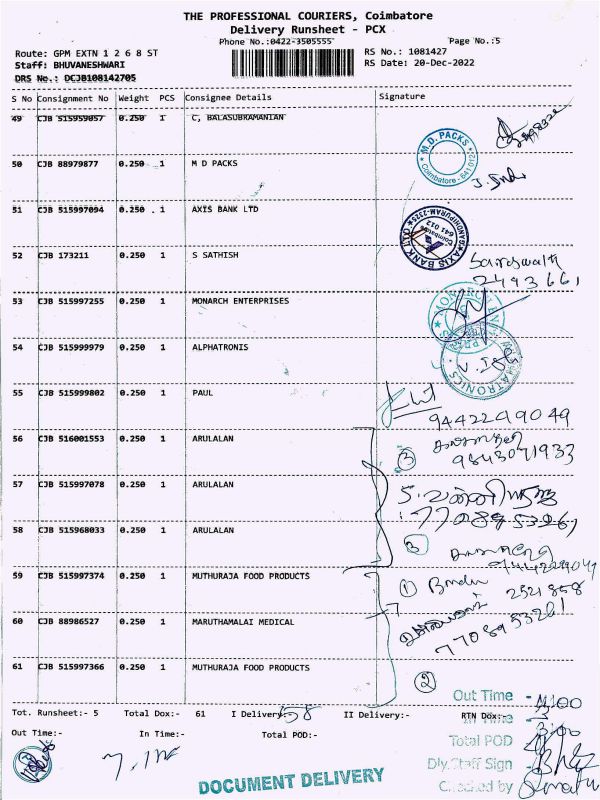 THE PROFESSIONAL COURIERS, Coimbatore
Delivery Runsheet - PCX
Phone No.:0422-3505555
Page No.:5
Route: GPM EXTN 1 2 6 8 ST
RS No.: 1081427
Staff: BHUVANESHWARI
RS Date: 20-Dec-2022
DRS No.: DCJB108142705
S No Consignment No Weight PCS Consignee Details Signature
49 CJB 515959057 0.250 1 C, BALASUBRAMANIAN
50 CJB 88979877 0.250 1 M D PACKS
M.D. PACKS
Coimbatore - 641 012
51 CJB 515997094 0.250 1 AXIS BANK LTD
AXIS BANK
641 012
52 CJB 173211 0.250 1 S SATHISH
2493661
53 CJB 515997255 0.250 1 MONARCH ENTERPRISES
54 CJB 515999979 0.250 1 ALPHATRONIS
55 CJB 515999802 0.250 1 PAUL
9442249049
56 CJB 516001553 0.250 1 ARULALAN
3
9843071933
57 CJB 515997078 0.250 1 ARULALAN
7708953261
58 CJB 515968033 0.250 1 ARULALAN
3
59 CJB 515997374 0.250 1 MUTHURAJA FOOD PRODUCTS
1 2521858
60 CJB 88986527 0.250 1 MARUTHAMALAI MEDICAL
7708953261
61 CJB 515997366 0.250 1 MUTHURAJA FOOD PRODUCTS
2
Out Time - 11.00
Tot. Runsheet:- 5 Total Dox:- 61 I Delivery:- 58 II Delivery:- RTN Dox:-
In Time -
Out Time:- In Time:- Total POD:-
Total POD
Dly.Staff Sign
Checked by
DOCUMENT DELIVERY